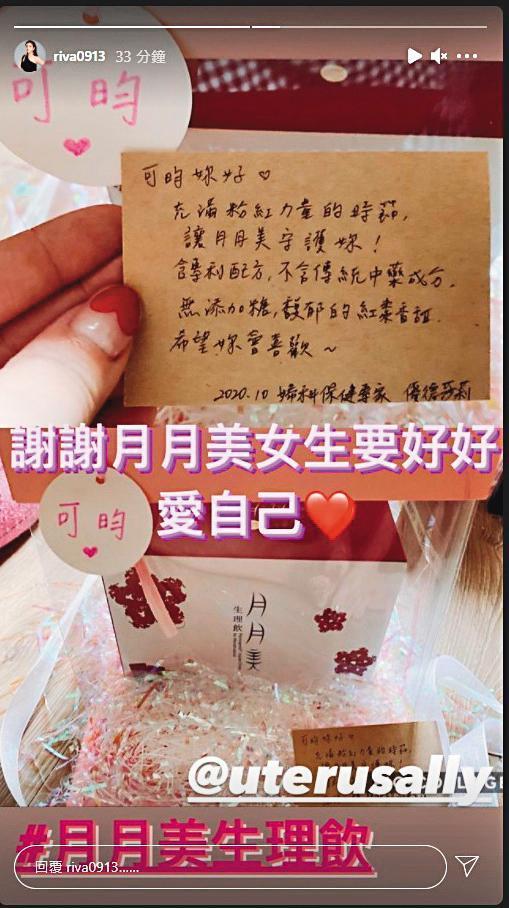 riva0913 33 分鐘
可 昀
可昀妳好♡
充滿粉紅力量的時節,
讓月月美守護妳!
含專利配方,不含傳統中藥成分.
無添加糖,馥郁的紅棗香甜.
希望妳會喜歡~
2020.10 婦科保健專家 優德莎莉
謝謝月月美女生要好好
愛自己❤️
可 昀
月月美
生理飲
可昀妳好♡
充滿粉紅力量的時節,
@uterusally
#月月美生理飲
回覆 riva0913......